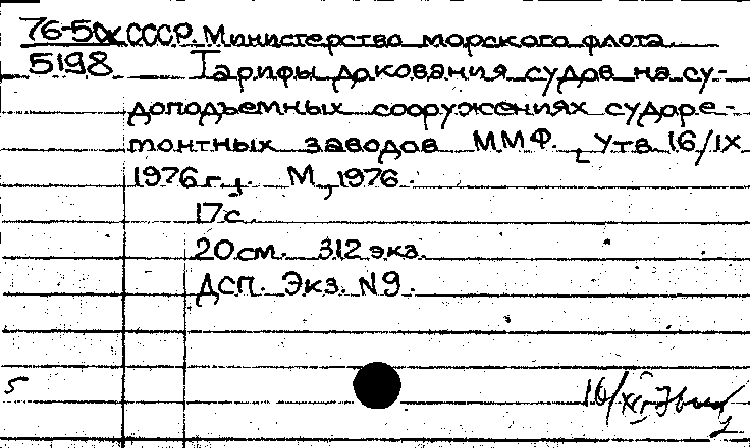 76-5сх СССР. Министерство морского флота
5198 Тарифы докования судов на су-
доподъемных сооружениях судоре-
монтных заводов ММФ. [Утв. 16/IX
1976 г.]. М., 1976.
17 с.
20 см. 312 экз.
ДСП. Экз. N9.
5
10/XI